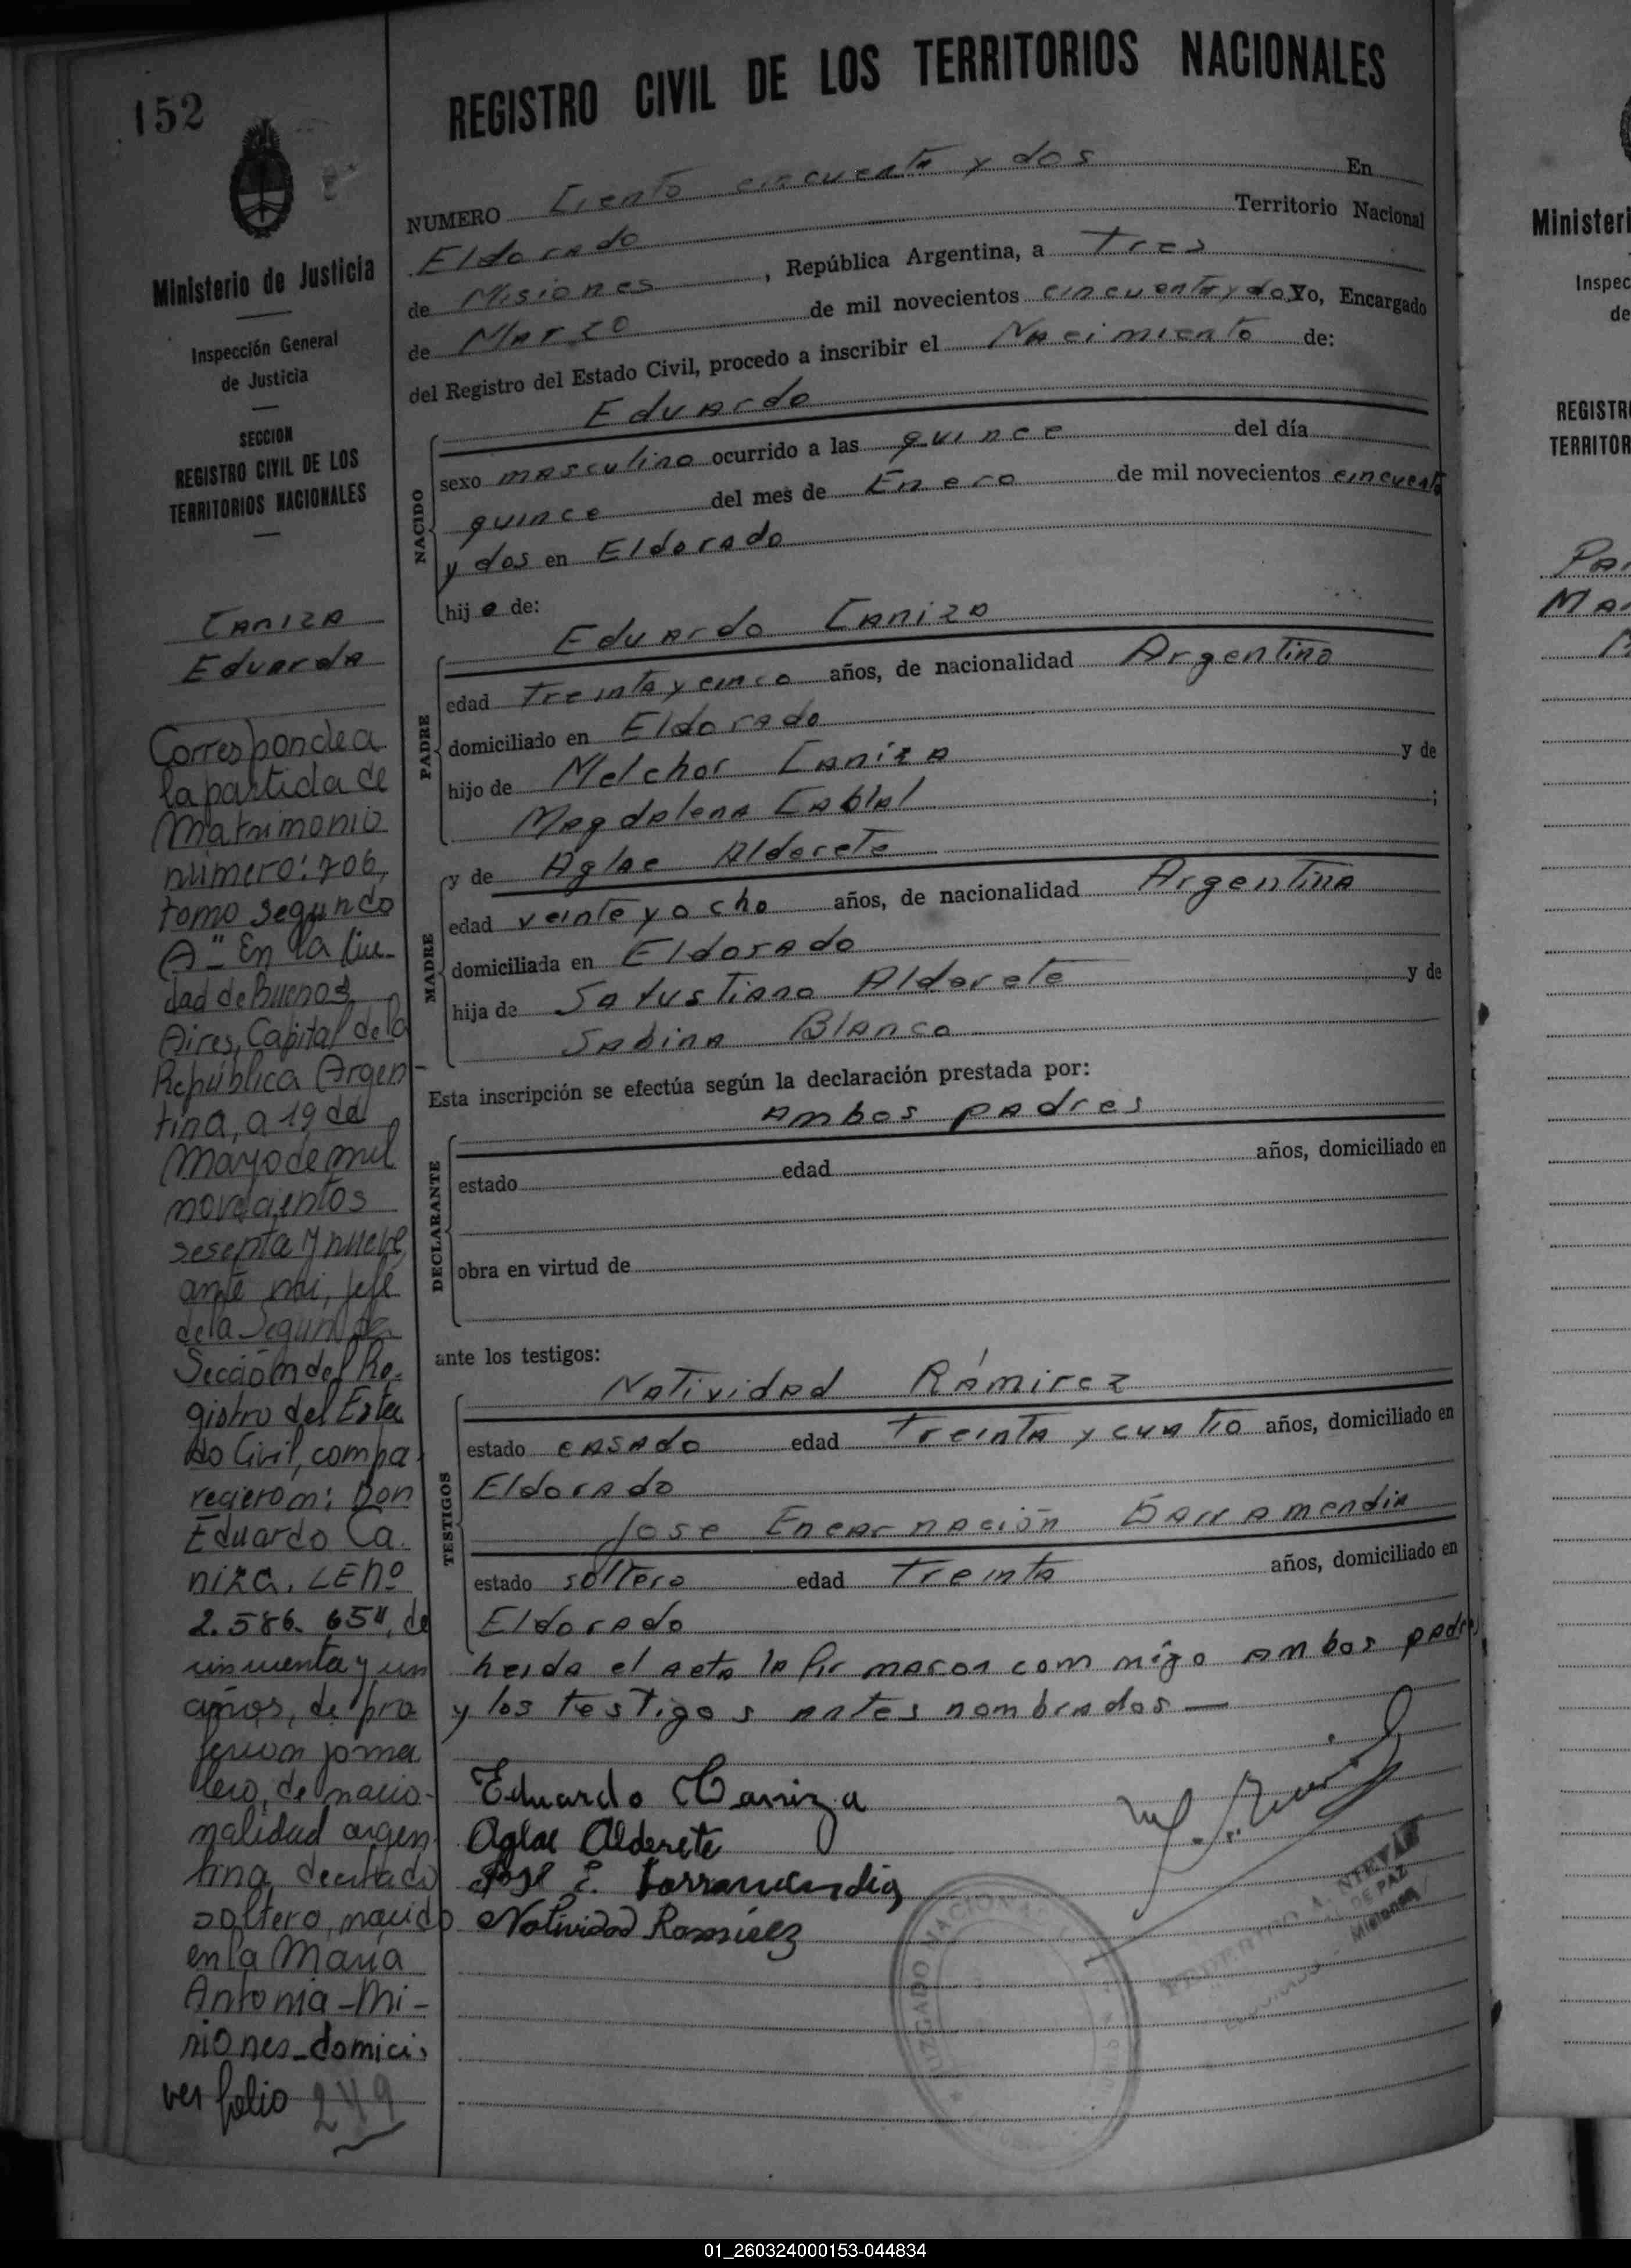 152
Ministerio de Justicia
Inspección General
de Justicia
SECCION
REGISTRO CIVIL DE LOS
TERRITORIOS NACIONALES
Caniza
Eduardo
Corresponde a
la partida de
Matrimonio
número: 706,
tomo segundo
A" En la Ciu-
dad de Buenos
Aires, Capital de la
República Argen-
tina, a 19 de
Mayo de mil
novecientos
sesenta y nueve,
ante mi, Jefe
de la Segunda
Sección del Re-
gistro del Esta
do Civil, compa
recieron: Don
Eduardo Ca.
niza. LEnº
2.586.654, de
cincuenta y un
años, de pro
fesion jorna
lero, de nacio-
nalidad argen
tina, de estado
soltero, nacido
en la María
Antonia-Mi-
siones-domici
ver folio 249
REGISTRO CIVIL DE LOS TERRITORIOS NACIONALES
NUMERO Ciento cincuenta y dos En
Eldorado Territorio Nacional
de Misiones, República Argentina, a Tres
de Marzo de mil novecientos cincuenta y dos Yo, Encargado
del Registro del Estado Civil, procedo a inscribir el Nacimiento de:
Eduardo
NACIDO
sexo masculino ocurrido a las quince del día
quince del mes de Enero de mil novecientos cincuenta
y dos en Eldorado
hijo de:
Eduardo Caniza
PADRE
edad Treinta y cinco años, de nacionalidad Argentino
domiciliado en Eldorado
hijo de Melchor Caniza y de
Magdalena Cabral ;
y de Aglae Alderete
MADRE
edad veinte y ocho años, de nacionalidad Argentina
domiciliada en Eldorado
hija de Salustiano Alderete y de
Sabina Blanco
Esta inscripción se efectúa según la declaración prestada por:
Ambos padres
DECLARANTE
estado edad años, domiciliado en
obra en virtud de
ante los testigos:
Natividad Rámirez
TESTIGOS
estado casado edad Treinta y cuatro años, domiciliado en
Eldorado
Jose Encarnación Barramendia
estado soltero edad Treinta años, domiciliado en
Eldorado
heida el acta la firmaron com migo ambos padres
y los testigos antes nombrados —
Eduardo Caniza
Aglae Alderete
Jose E. Barramendia
Natividad Ramirez
JUZGADO NACIONAL
A. NIEVAS
DE PAZ
ELDORADO - Misiones
Ministeri
Inspec
de
REGISTR
TERRITOR
01_260324000153-044834